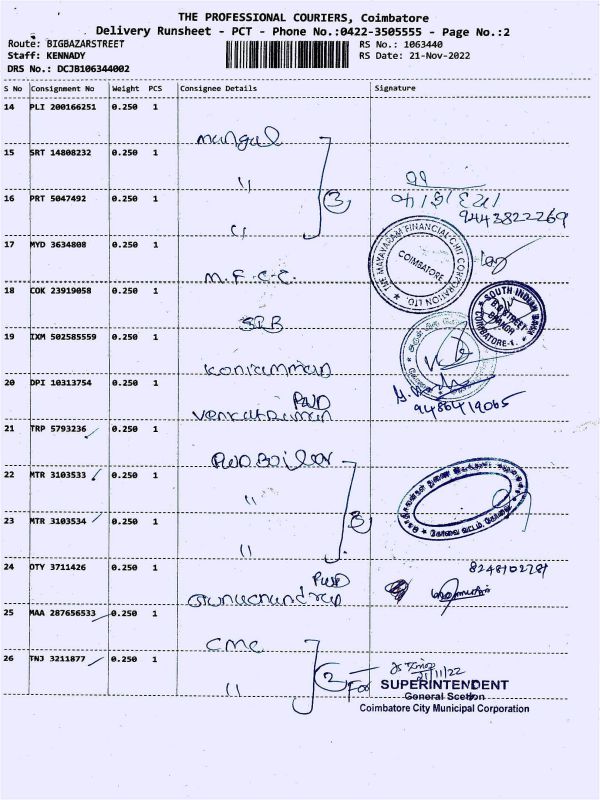 THE PROFESSIONAL COURIERS, Coimbatore
Delivery Runsheet - PCT - Phone No.:0422-3505555 - Page No.:2
Route: BIGBAZARSTREET
RS No.: 1063440
Staff: KENNADY
RS Date: 21-Nov-2022
DRS No.: DCJB106344002
S No Consignment No Weight PCS Consignee Details Signature
14 PLI 200166251 0.250 1
mangal
15 SRT 14808232 0.250 1
"
3
16 PRT 5047492 0.250 1
9443822269
"
17 MYD 3634808 0.250 1
THE MAYAVARAM FINANCIAL CHIT CORPORATION LTD. COIMBATORE
M.F.C.C.
18 COK 23919058 0.250 1
SOUTH INDIAN BANK B.B. STREET BRANCH COIMBATORE-1.
SRB
19 IXM 502585559 0.250 1
20 DPI 10313754 0.250 1
PWD
9486419065
21 TRP 5793236 0.250 1
22 MTR 3103533 0.250 1
"
3
23 MTR 3103534 0.250 1
"
24 OTY 3711426 0.250 1
8248102781
PWD
25 MAA 287656533 0.250 1
CMC
26 TNJ 3211877 0.250 1
2
21/11/22
For
"
SUPERINTENDENT
General Section
Coimbatore City Municipal Corporation